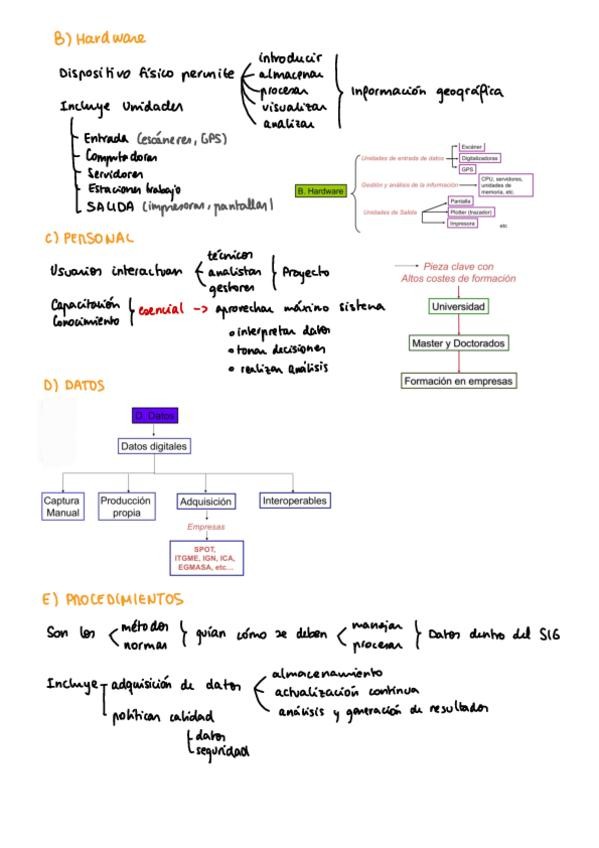 B) Hardware
Dispositivo físico permite
introducir
almacenar
procesar
visualizar
analizar
Información geográfica
Incluye Unidades
Entrada (escáneres, GPS)
Computadoras
Servidores
Estaciones trabajo
SALIDA (impresoras, pantallas)
B. Hardware
Unidades de entrada de datos
Escáner
Digitalizadoras
GPS
Gestión y análisis de la información
CPU, servidores,
unidades de
memoria, etc.
Unidades de Salida
Pantalla
Plotter (trazador)
Impresora
etc
C) PERSONAL
Usuarios interactuan
técnicos
analistas
gestores
Proyecto
Capacitación
Conocimiento
esencial -> aprovechar máximo sistema
• interpretar datos
• tomar decisiones
• realizar análisis
Pieza clave con
Altos costes de formación
Universidad
Master y Doctorados
Formación en empresas
D) DATOS
D. Datos
Datos digitales
Captura
Manual
Producción
propia
Adquisición
Interoperables
Empresas
SPOT,
ITGME, IGN, ICA,
EGMASA, etc...
E) PROCEDIMIENTOS
Son los
métodos
normas
guían cómo se deben
manejar
procesar
Datos dentro del SIG
Incluye
adquisición de datos
almacenamiento
actualización continua
análisis y generación de resultados
políticas calidad
datos
seguridad